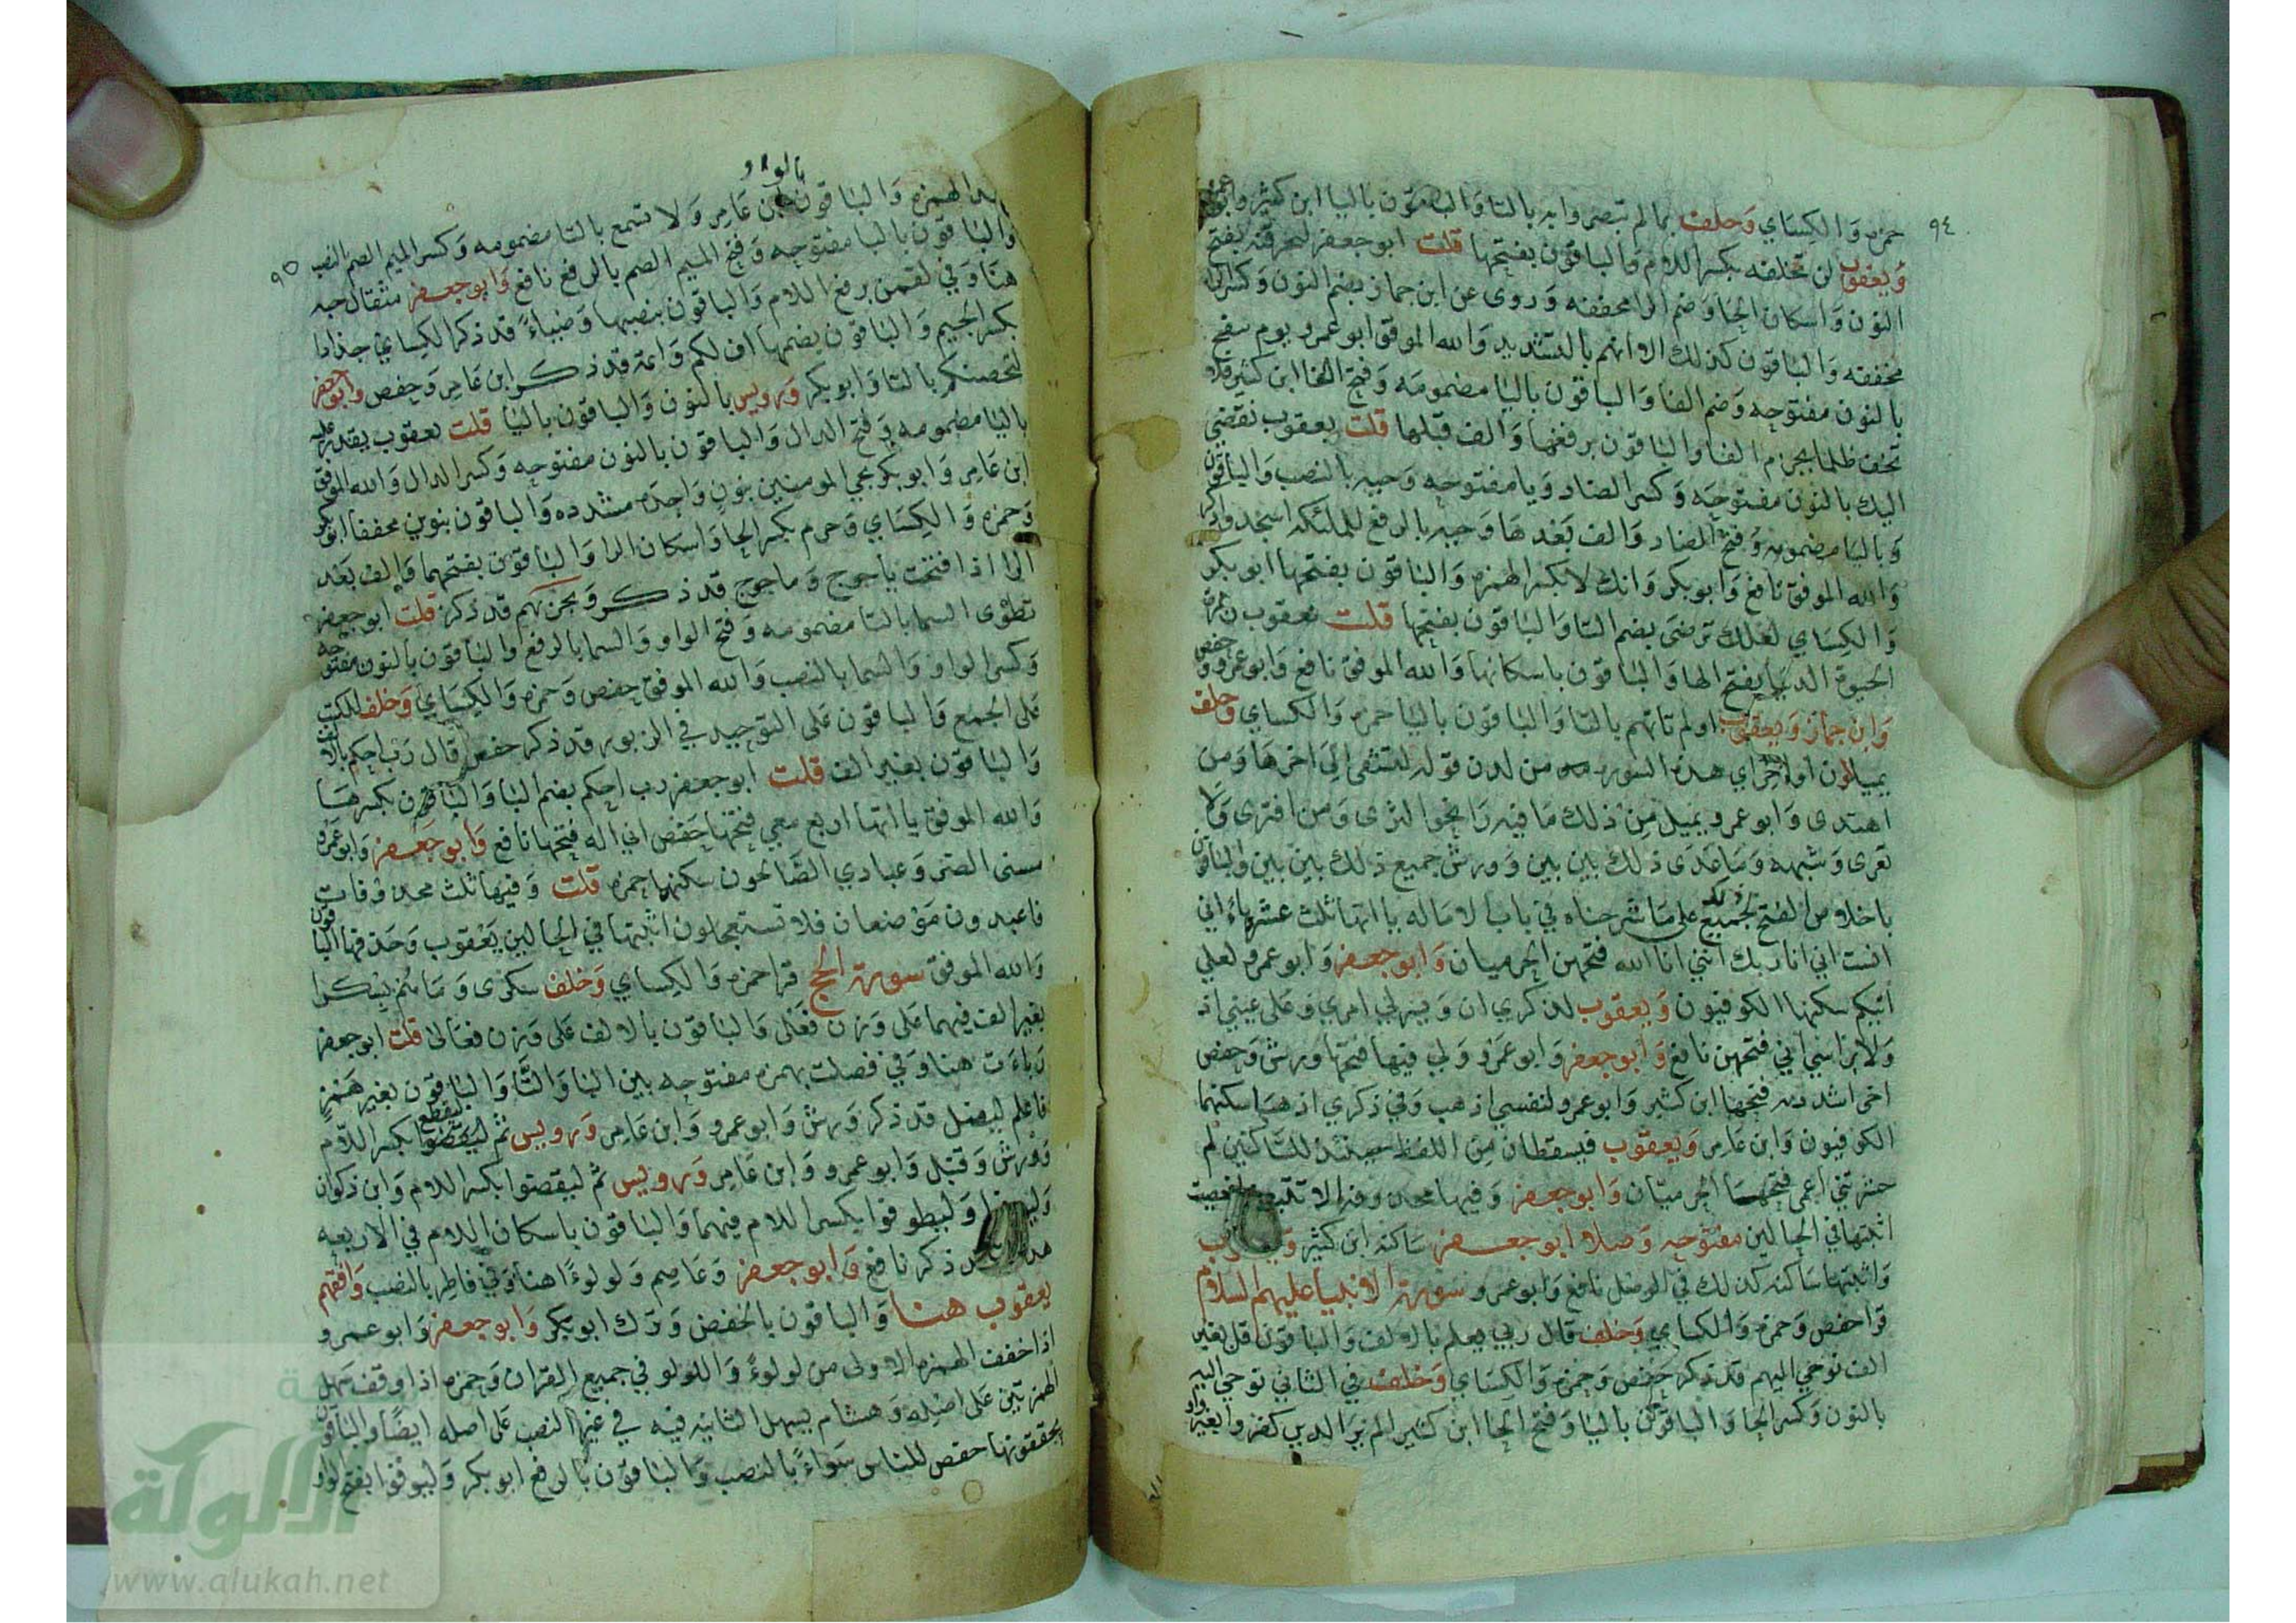 ٩٤
حمزه وَالكِسَاي وَخلف بما لم تبصروا به بالتا وَالباقون بالياء ابن كثير وابو عمرو
وَيعقوب لن تخلفه بكسر اللام وَالباقون بفتحها قلت ابو جعفر لنحرقنه بفتح
النون وَاسكان الحا وَضم الرا مخففه وَروى عن ابن جماز بضم النون وَكسر الرا
مخففه وَالباقون كذلك الا انهم بالتشديد وَالله الموفق ابو عمرو يوم ننفخ
بالنون مفتوحه وَضم الفا وَالباقون باليا مضمومه وَفتح الفا ابن كثير فلا
تخف ظلما بجزم الفا وَالباقون برفعها وَالف قبلها قلت يعقوب نقضي
اليك بالنون مفتوحه وَكسر الضاد وَيا مفتوحه وَحيه بالنصب وَالباقون
وَباليا مضمومه وَفتح الضاد وَالف بعدها وَحيه بالرفع للملئكه اسجدوا ذكر
وَالله الموفق نافع وَابو بكر وَانك لا بكسر الهمزه وَالباقون بفتحها ابو بكر
وَالكِسَاي لعلك ترضى بضم التا وَالباقون بفتحها قلت يعقوب زهرة
الحيوة الدنيا بفتح الها وَالباقون باسكانها وَالله الموفق نافع وَابو عمرو وحفص
وَابن جماز وَيعقوب اولم تاتهم بالتا وَالباقون باليا حمزه وَالكساي وَخلف
يميلون اواخر اي هذه السوره من لدن قوله لتشقى الى اخرها وَمن
اهتدى وَابو عمرو يميل من ذلك ما فيه را نحو الثرى وَمن افترى وَلا
تعرى وَشبهه وَما عدى ذلك بين بين وَورش جميع ذلك بين بين والباقون
باخلاص الفتح لجميع ذلك على ما شرحناه في باب الاماله ياءاتها ثلث عشرة ياء اني
انست اني انا ربك انني انا الله فتحهن الحرميان وَابو جعفر وَابو عمرو لعلي
اتيكم سكنها الكوفيون وَيعقوب لذكري ان وَيسر لي امري وَعلى عيني اذ
وَلا براسي اني فتحهن نافع وَابو جعفر وَابو عمرو وَلي فيها فتحها ورش وَحفص
اخى اشدد به فتحها ابن كثير وَابو عمرو لنفسي اذهب وَفي ذكري اذهبا سكنهما
الكوفيون وَابن عامر وَيعقوب فيسقطان من اللفظ حينئذ للساكنين لم
حشرتني اعمى فتحها الحرميان وَابو جعفر وَفيها محذوفه الا تتبعن افعصيت
اثبتها في الحالين مفتوحه وَصلا ابو جعفر ساكنه ابن كثير وَيعقوب
وَاثبتها ساكنه كذلك في الوصل نافع وَابو عمرو سورة الانبيا عليهم السلام
قرا حفص وَحمزه وَالكساي وَخلف قال ربي يعلم بالالف وَالباقون قل بغير
الف نوحي اليهم قد ذكر حفص وَحمزه وَالكِسَاي وَخلف في الثاني نوحي اليه
بالنون وَكسر الحا وَالباقون باليا وَفتح الحا ابن كثير الم ير الذين كفروا بغير واو
٩٥
بالواو
بعد الهمزه وَالباقون ابن عَامر وَلا تسمع بالتا مضمومه وَكسر الميم الصم النصب
وَالباقون باليا مفتوحه وَفتح الميم الصم بالرفع نافع وَابو جعفر مثقال حبه
هنا وَفي لقمن برفع اللام وَالباقون بنصبها وَضياءً قد ذكر الكساي جذاذا
بكسر الجيم وَالباقون بضمها اف لكم وَائمة قد ذكر ابن عامر وَحفص وابو جعفر
لتحصنكم بالتا وَابو بكر وَرويس بالنون وَالباقون باليا قلت يعقوب يقدر عليه
باليا مضمومه وَفتح الدال وَالباقون بالنون مفتوحه وَكسر الدال وَالله الموفق
ابن عَامر وَابو بكر نجي المومنين بنون وَاحده مشدده وَالباقون بنونين مخففا ابو بكر
وَحمزه وَالكِسَاي وَحرم بكسر الحا وَاسكان الرا وَالباقون بفتحهما وَالف بعد
الرا اذا فتحت ياجوج وَماجوج قد ذكر وَيحزنهم قد ذكر قلت ابو جعفر
تطوى السما بالتا مضمومه وَفتح الواو وَالسما بالرفع وَالباقون بالنون مفتوحه
وَكسر الواو وَالسما بالنصب وَالله الموفق حفص وَحمزه وَالكِسَاي وَخلف للكتب
على الجمع وَالباقون على التوحيد في الزبور قد ذكر حفص قال رب احكم بالالف
وَالباقون بغير الف قلت ابو جعفر رب احكم بضم البا وَالباقون بكسرها
وَالله الموفق ياءاتها اربع معي فتحها حفص اني اله فتحها نافع وَابو جعفر وَابو عمرو
مسني الضر وَعبادي الصَّالحون سكنهما حمزه قلت وَفيها ثلث محذوفات
فاعبدون موضعان فلا تستعجلون اثبتها في الحالين يعقوب وَحذفها الباقون
وَالله الموفق سورة الحج قرا حمزه وَالكِسَاي وَخلف سكرى وَما هم بسكرى
بغير الف فيهما على وَزن فعلى وَالباقون بالالف على وَزن فعالى قلت ابو جعفر
رباءَت هنا وَفي فصلت بهمزه مفتوحه بين البا وَالتا وَالباقون بغير همز
فاعلم ليضل قد ذكر وَرش وَابو عمرو وَابن عَامر وَرويس ثم ليقطع بكسر اللام
وَورش وَقنبل وَابو عمرو وَابن عَامر وَرويس ثم ليقضوا بكسر اللام وَابن ذكوان
وَليوفوا وَليطوفوا بكسر اللام فيهما وَالباقون باسكان اللام في الاربعه
قد ذكر نافع وَابو جعفر وَعاصم وَلولوءًا هنا وَفي فاطر بالنصب وَافقهم
يعقوب هنا وَالباقون بالخفض وَترك ابو بكر وَابو جعفر وَابو عمرو
اذا خفف الهمزه الاولى من لولوءً وَاللولو في جميع القران وَحمزه اذا وقف سهل
الهمزتين على اصله وَهشام يسهل الثانيه فيه في غير النصب على اصله ايضًا وَالباقون
يحققونها حفص للناس سَوَاءً بالنصب وَالباقون بالرفع ابو بكر وَليوفوا بفتح الواو
الألوكة
www.alukah.net